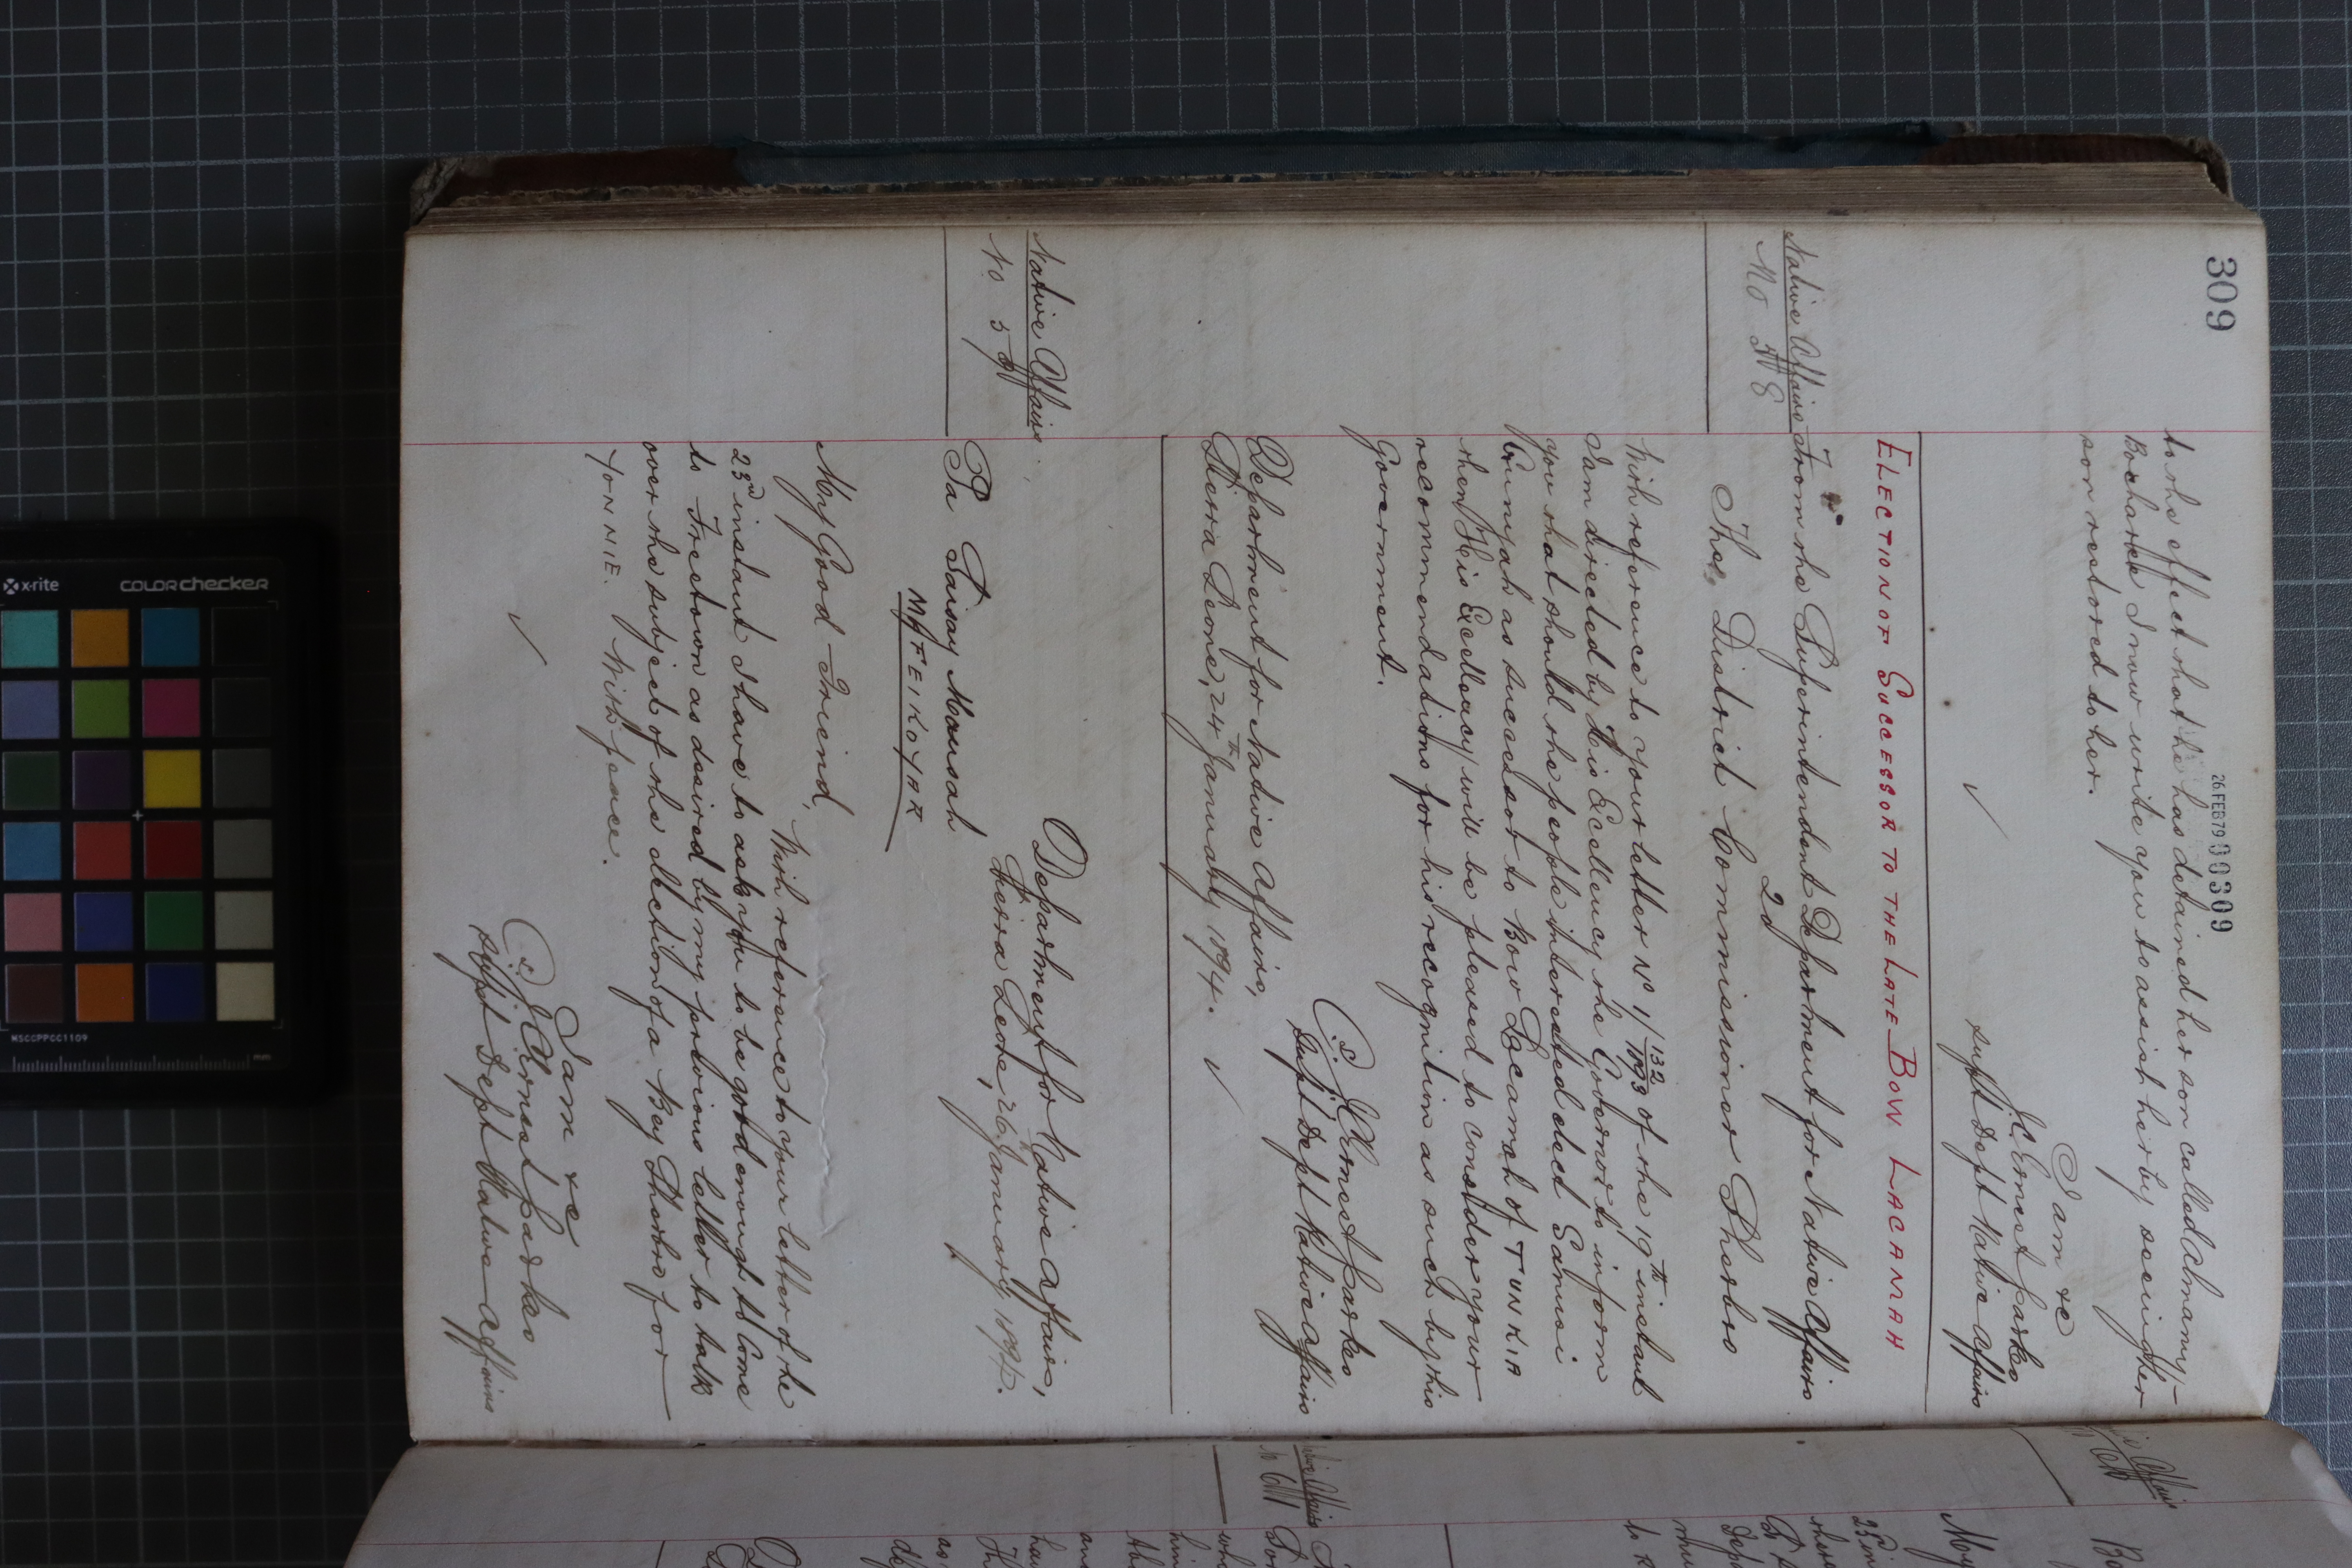 309
26 FEB 79 000309
to the effect that he has detained her son called Almamy
I now write you to assist her by seeing her
son restored to her.
I am &c
J C Ernest Parkes
Supt Dept Native Affairs
ELECTION OF SUCCESSOR TO THE LATE BOW LACANAH
Native Affairs
From the Superintendent Department for Native Affairs
20
The District Commissioner Sherbro
With reference to your letter No 1/132/1893 of the 19th instant
I am directed by His Excellency the Governor to inform
you that should the people interested elect Sannoi
as successor to Bow Lacanah of TUNKIA
then His Excellency will be pleased to consider your
recommendations for his recognition as such by this
Government.
(s) J C Ernest Parkes
Supt Dept Native Affairs
Department for Native Affairs,
Sierra Leone, 24th January 1894.
Native Affairs
No 59
Department for Native Affairs,
Sierra Leone, 26th January 1894.
Pa Suisay Mousah
MAFEIKOYAR
My Good Friend,
With reference to your letter of the
23rd instant I have to ask you to be good enough to come
to Freetown as desired by my previous letter to talk
over the subject of the election of a Bey Sherbro for
YONNIE. With peace.
I am &c
(s) J C Ernest Parkes
Supt Dept Native Affairs
x-rite
colorchecker
MSCCPPCC1109
mm